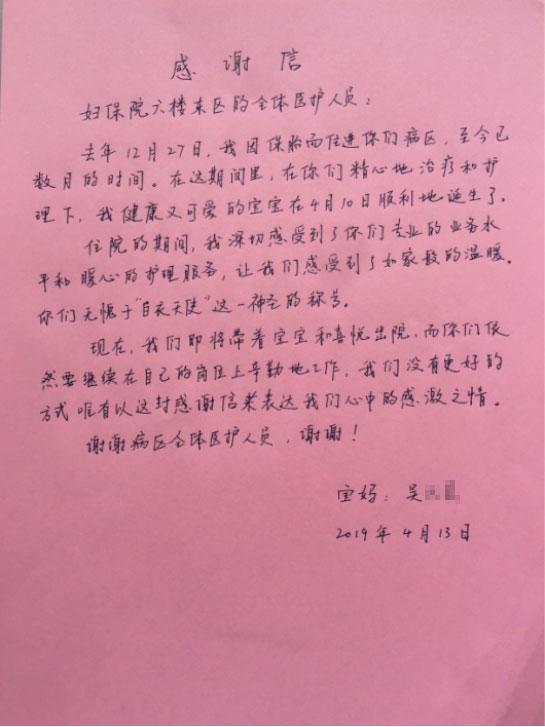 感谢信
妇保院六楼东区的全体医护人员：
去年12月27日，我因保胎而住进你们病区，至今已
数月的时间。在这期间里，在你们精心地治疗和护
理下，我健康又可爱的宝宝在4月10日顺利地诞生了。
住院的期间，我深切感受到了你们专业的业务水
平和暖心的护理服务，让我们感受到了如家般的温暖。
你们无愧于"白衣天使"这一神圣的称号。
现在，我们即将带着宝宝和喜悦出院，而你们依
然要继续在自己的岗位上辛勤地工作，我们没有更好的
方式唯有以这封感谢信来表达我们心中的感激之情。
谢谢病区全体医护人员，谢谢！
宝妈：吴
2019年4月13日